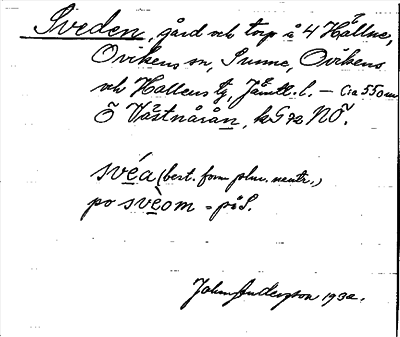 Sveden, gård och torp å 4 Hållne,
Ovikens sn, Sunne, Ovikens
och Hallens tg, Jämtl. l. – Ca 550 m
Ö Västnårån, kG 72 NÖ.
svéa (best. form plur. neutr.,)
po svèom = på S.
John Anderson 1932.